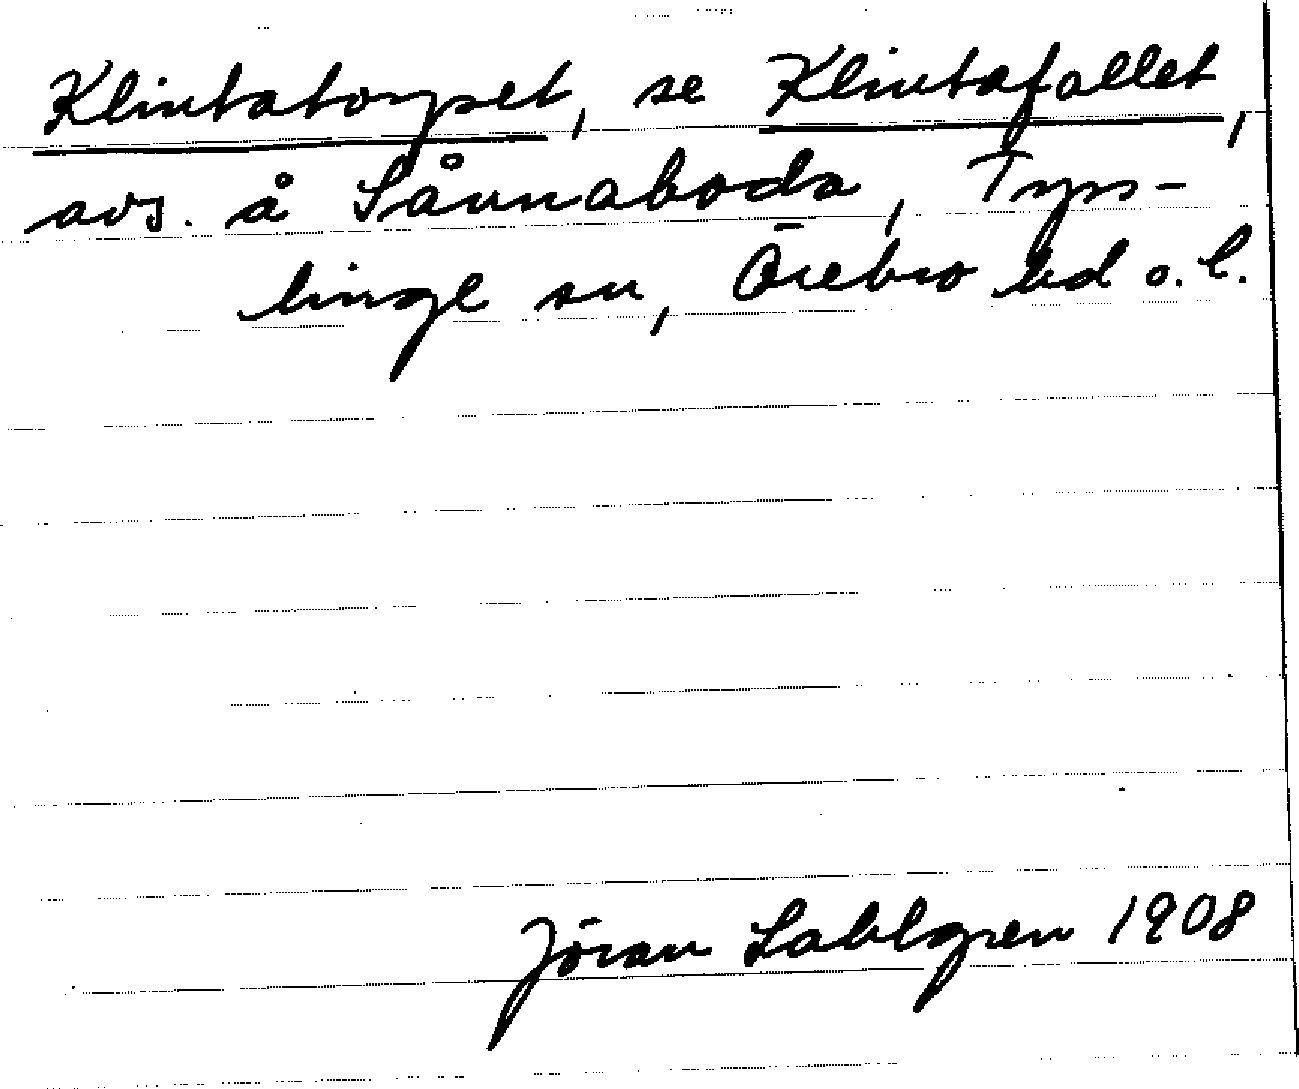 Klintatorpet, se Klintafallet,
avs. å Sånnaboda, Tyss-
linge sn, Örebro hd o. l.
Jöran Sahlgren 1908